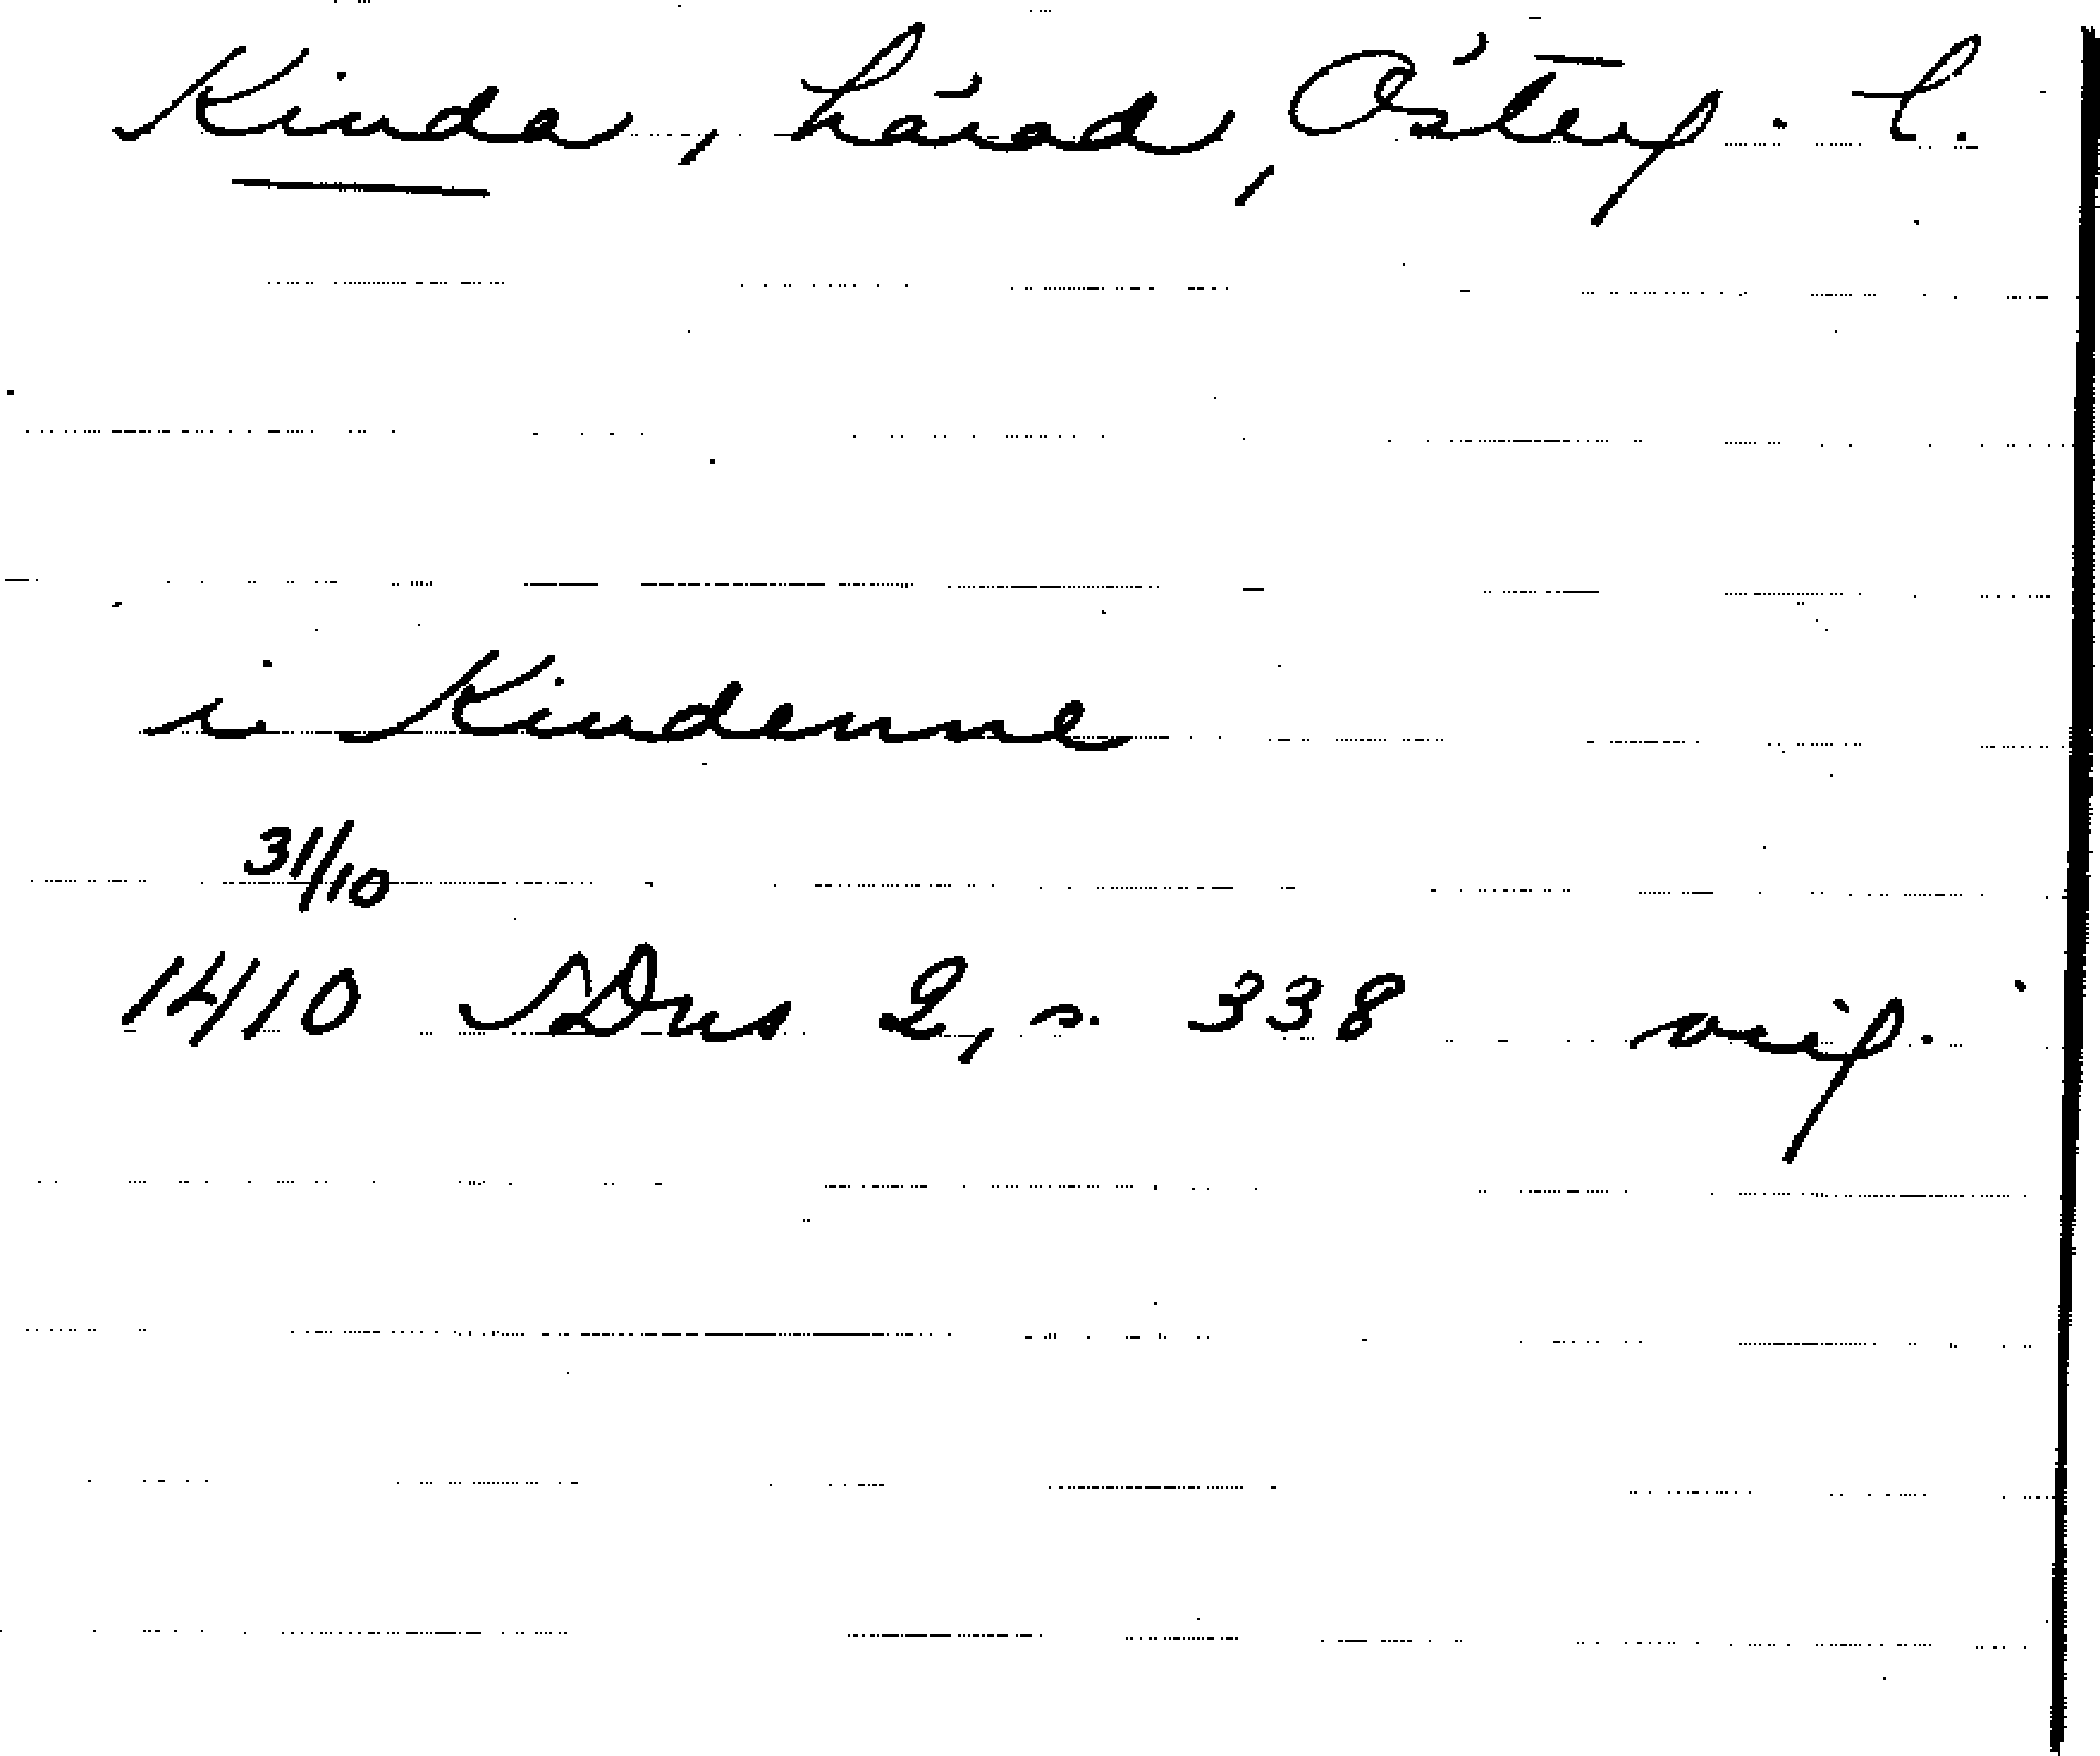 Kinda, härad, Österg. l.
i Kindenne
31/10
1410 SDns 2, s. 338 orig.